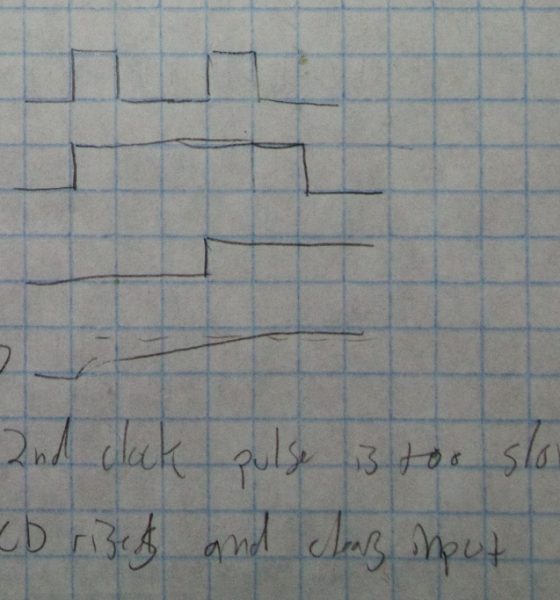 2nd clock pulse is too slo
CD rises and clears input